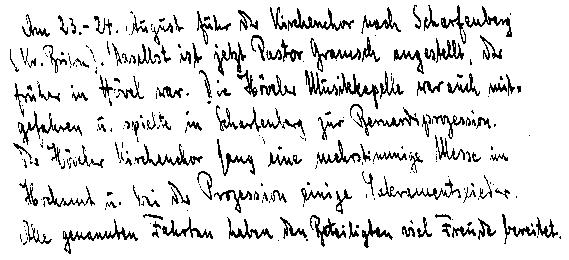 Am 23.-24. August fuhr der Kirchenchor nach Scharfenberg
(Kr. Brilon). Daselbst ist jetzt Pastor Gramsch angestellt, der
früher in Hövel war. Die Höveler Musikkapelle war auch mit-
gefahren u. spielte in Scharfenberg zur Bernardiprozession.
Der Höveler Kirchenchor sang eine mehrstimmige Messe im
Hochamt u. bei der Prozession einige Sakramentslieder.
Alle genannten Fahrten haben den Beteiligten viel Freude bereitet.